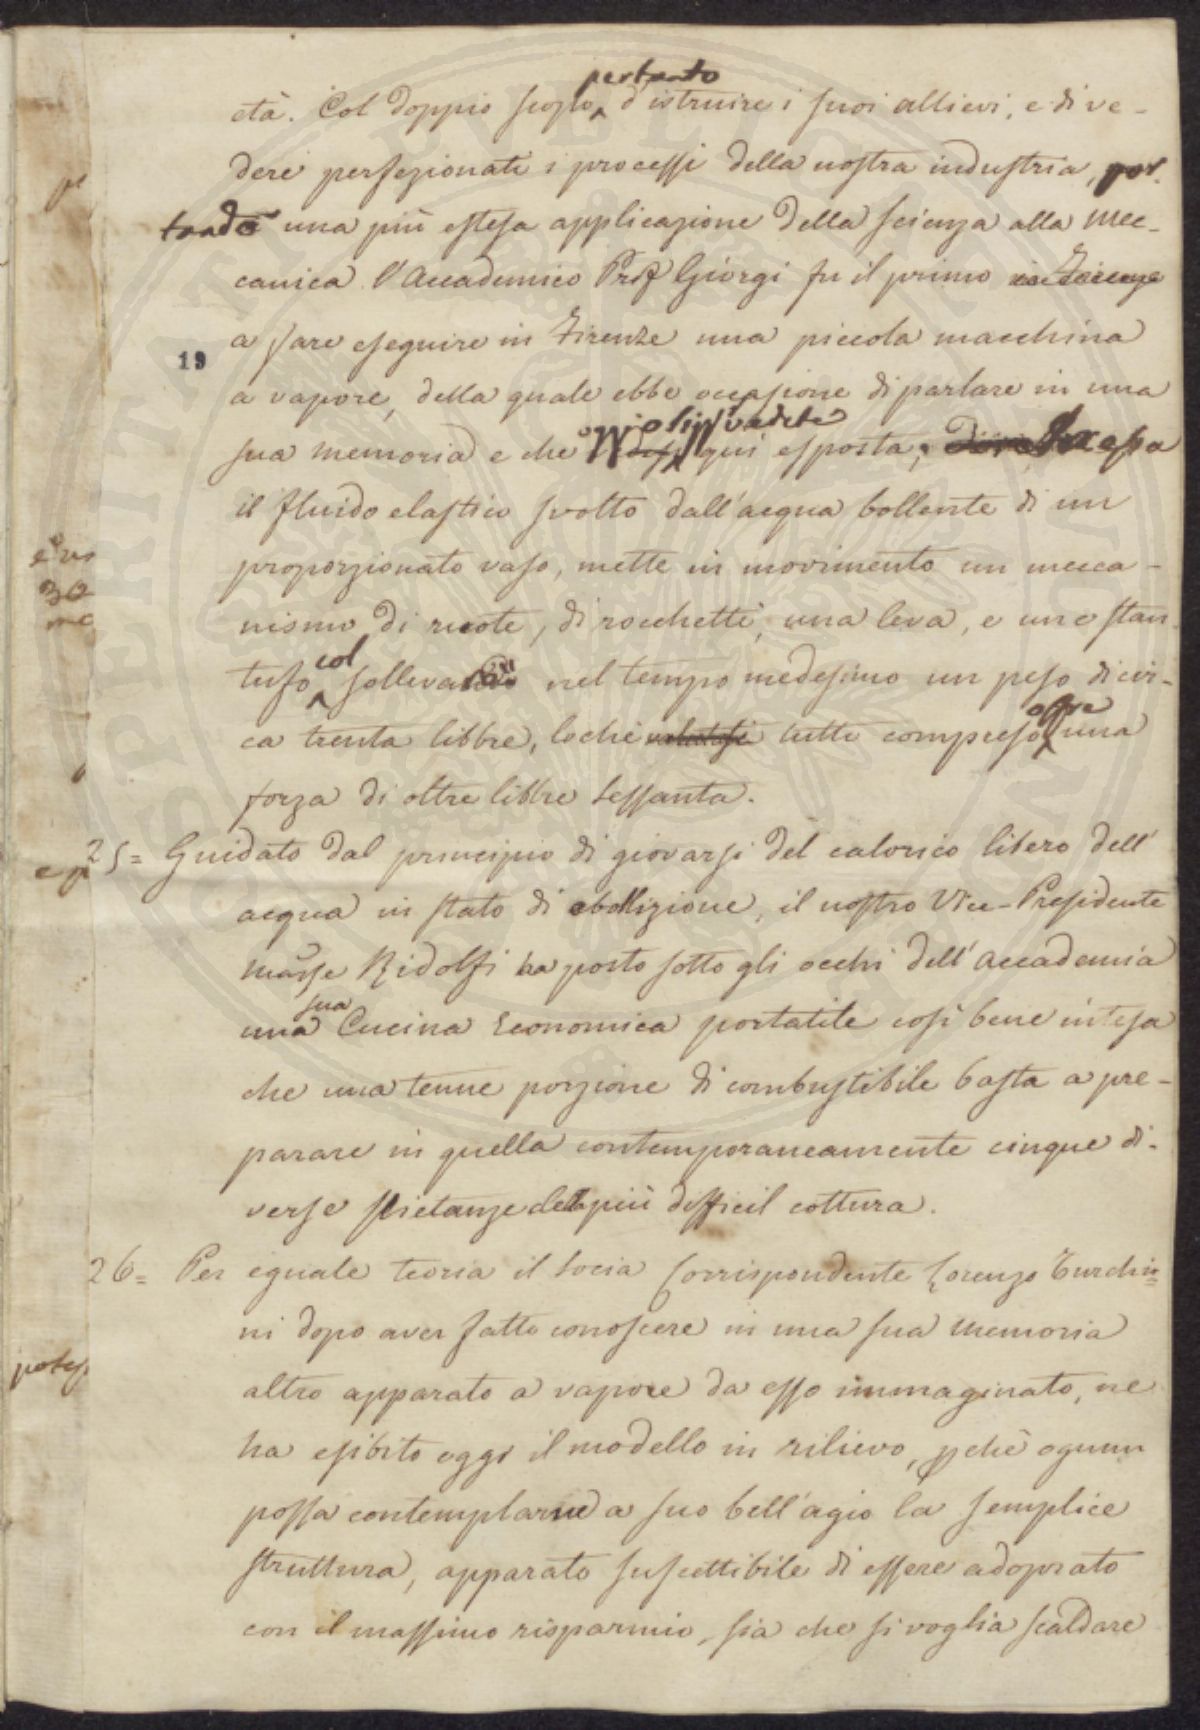 pertanto
età. Col doppio scopo d'istruire i suoi allievi, e di ve-
dere perfezionati i processi della nostra industria, por-
tando una più estesa applicazione della scienza alla mec-
canica l'Accademico Prof Giorgi fu il primo in Firenze
a fare eseguire in Firenze una piccola macchina
19
a vapore, della quale ebbe occasione di parlare in una
oggi vedete
sua memoria e che qui esposta, essa
il fluido elastico svolto dall'acqua bollente di un
proporzionato vaso, mette in movimento un mecca-
nismo di ruote, di rocchetti, una leva, e uno stan-
col
tufo sollevare nel tempo medesimo un peso di cir-
offre
ca trenta libbre, loche tutto compreso una
forza di oltre libbre sessanta.
25= Guidato dal principio di giovarsi del calorico libero dell'
acqua in stato di ebollizione, il nostro Vice-Presidente
March.se Ridolfi ha posto sotto gli occhi dell'Accademia
sua
una Cucina Economica portatile così bene intesa
che una tenue porzione di combustibile basta a pre-
parare in quella contemporaneamente cinque di-
verse pietanze del più difficil cottura.
26= Per eguale teoria il Socia Corrispondente Lorenzo Turchi=
ni dopo aver fatto conoscere in una sua memoria
altro apparato a vapore da esso immaginato, ne
ha esibito oggi il modello in rilievo, pchè ognun
possa contemplarne a suo bell'agio la semplice
struttura, apparato suscettibile di essere adoprato
con il massimo risparmio, sia che si voglia scaldare